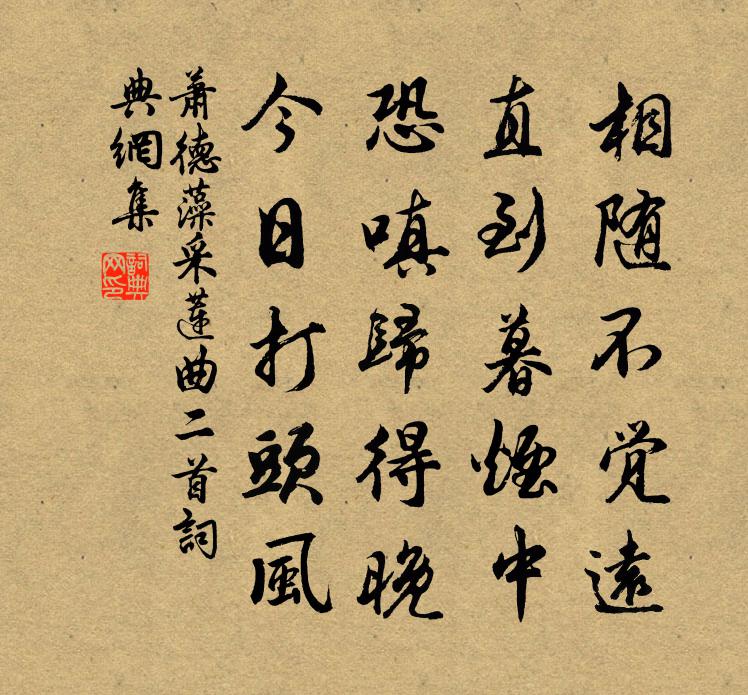 相随不覚遠
直到暮煙中
恐嗔歸得晚
今日打頭風
蕭德藻采蓮曲二首詞
典網集
詞典
网印